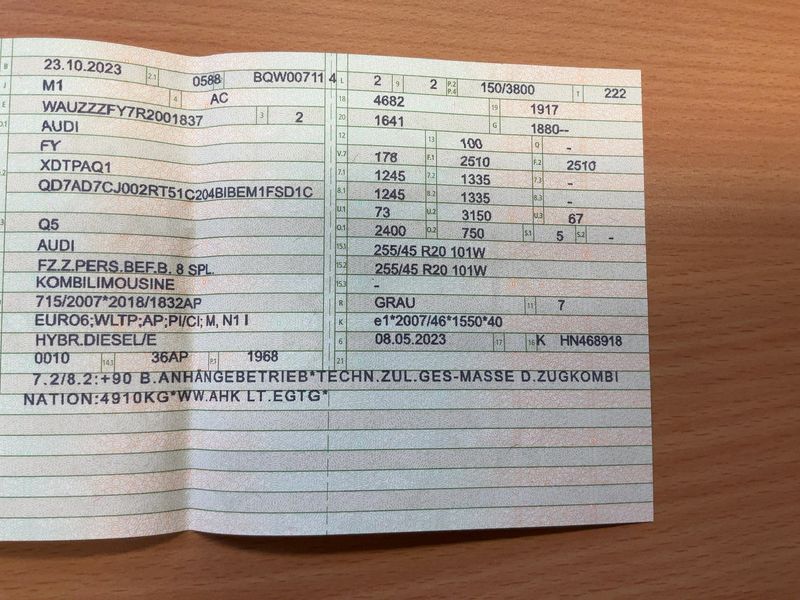 B 23.10.2023 2.1 0588 BQW00711 4
J M1 4 AC
E WAUZZZFY7R2001837 3 2
D.1 AUDI
FY
XDTPAQ1
QD7AD7CJ002RT51C204BIBEM1FSD1C
Q5
AUDI
FZ.Z.PERS.BEF.B. 8 SPL.
KOMBILIMOUSINE
715/2007*2018/1832AP
EURO6;WLTP;AP;PI/CI; M, N1 I
HYBR.DIESEL/E
0010 14.1 36AP P.1 1968
L 2 9 2 P.2 P.4 150/3800 T 222
18 4682 19 1917
20 1641 G 1880--
12 13 100 Q -
V.7 178 F.1 2510 F.2 2510
7.1 1245 7.2 1335 7.3 -
8.1 1245 8.2 1335 8.3 -
U.1 73 U.2 3150 U.3 67
O.1 2400 O.2 750 S.1 5 S.2 -
15.1 255/45 R20 101W
15.2 255/45 R20 101W
15.3 -
R GRAU 11 7
K e1*2007/46*1550*40
6 08.05.2023 17 16 K HN468918
21
7.2/8.2:+90 B.ANHÄNGEBETRIEB*TECHN.ZUL.GES-MASSE D.ZUGKOMBI
NATION:4910KG*WW.AHK LT.EGTG*